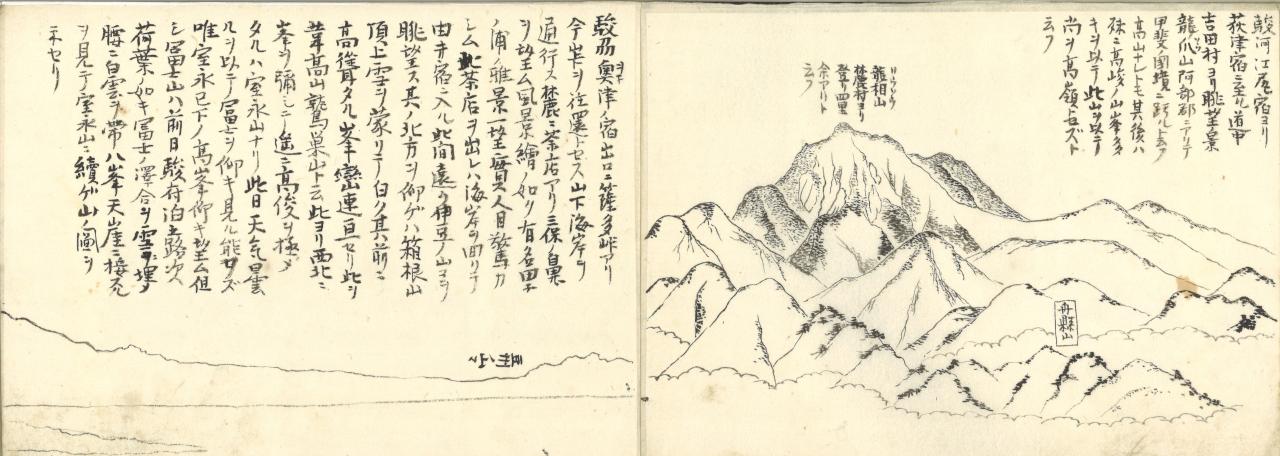 駿河江尻宿ヨリ
荻津宿ニ至ル道中
吉田村ヨリ眺望ノ景
龍爪山阿部郡ニアリテ
甲斐ノ國境ニ跨ルト云フ
高山ナレトモ其後ハ
殊ニ高峻ノ山峯多
キヲ以テ此山ヲ以テ
尚ヲ高嶺トセズト
云フ
龍相山
麓村ヨリ
登リ四里
余アリト
云フ
舟縣山
駿州奥津ノ宿出口ニ薩多峠アリ
今峠ヲ往還トセス山下海岸ヲ
通行ス麓ニ茶店アリ三保ノ
ヲ望ム風景繪ノ如ク有名田子
ノ浦ノ雅景一望實ニ人目驚カ
シム此茶店ヲ出レハ海岸ヲ回リテ
由井宿ニ入ル此間遠ク伊豆ノ山ヲ
眺望ス其ノ北方ヲ仰ゲハ箱根山
頂上雪ヲ蒙リテ白ク其前ニ
高聳タル峯巒連亘セリ此ヲ
葦高山鷲巣山ト云此ヨリ西北ニ
峯ヲ彌シニ遥ニ高俊ヲ極メ
タルハ室永山ナリ此日天氣曇
ルヲ以テ冨士ヲ仰キ見ル能ワズ
唯室永已下ノ高峯仰キ望ム但
シ冨士山ハ前日駿府泊上路次
荷葉ノ如キ冨士ノ澤合ヲ雪ヲ埋メ
腰ニ白雲ヲ帯ハ峯天山崖ニ接
ヲ見テ室永山ニ續ゲ山ノ圖ヲ